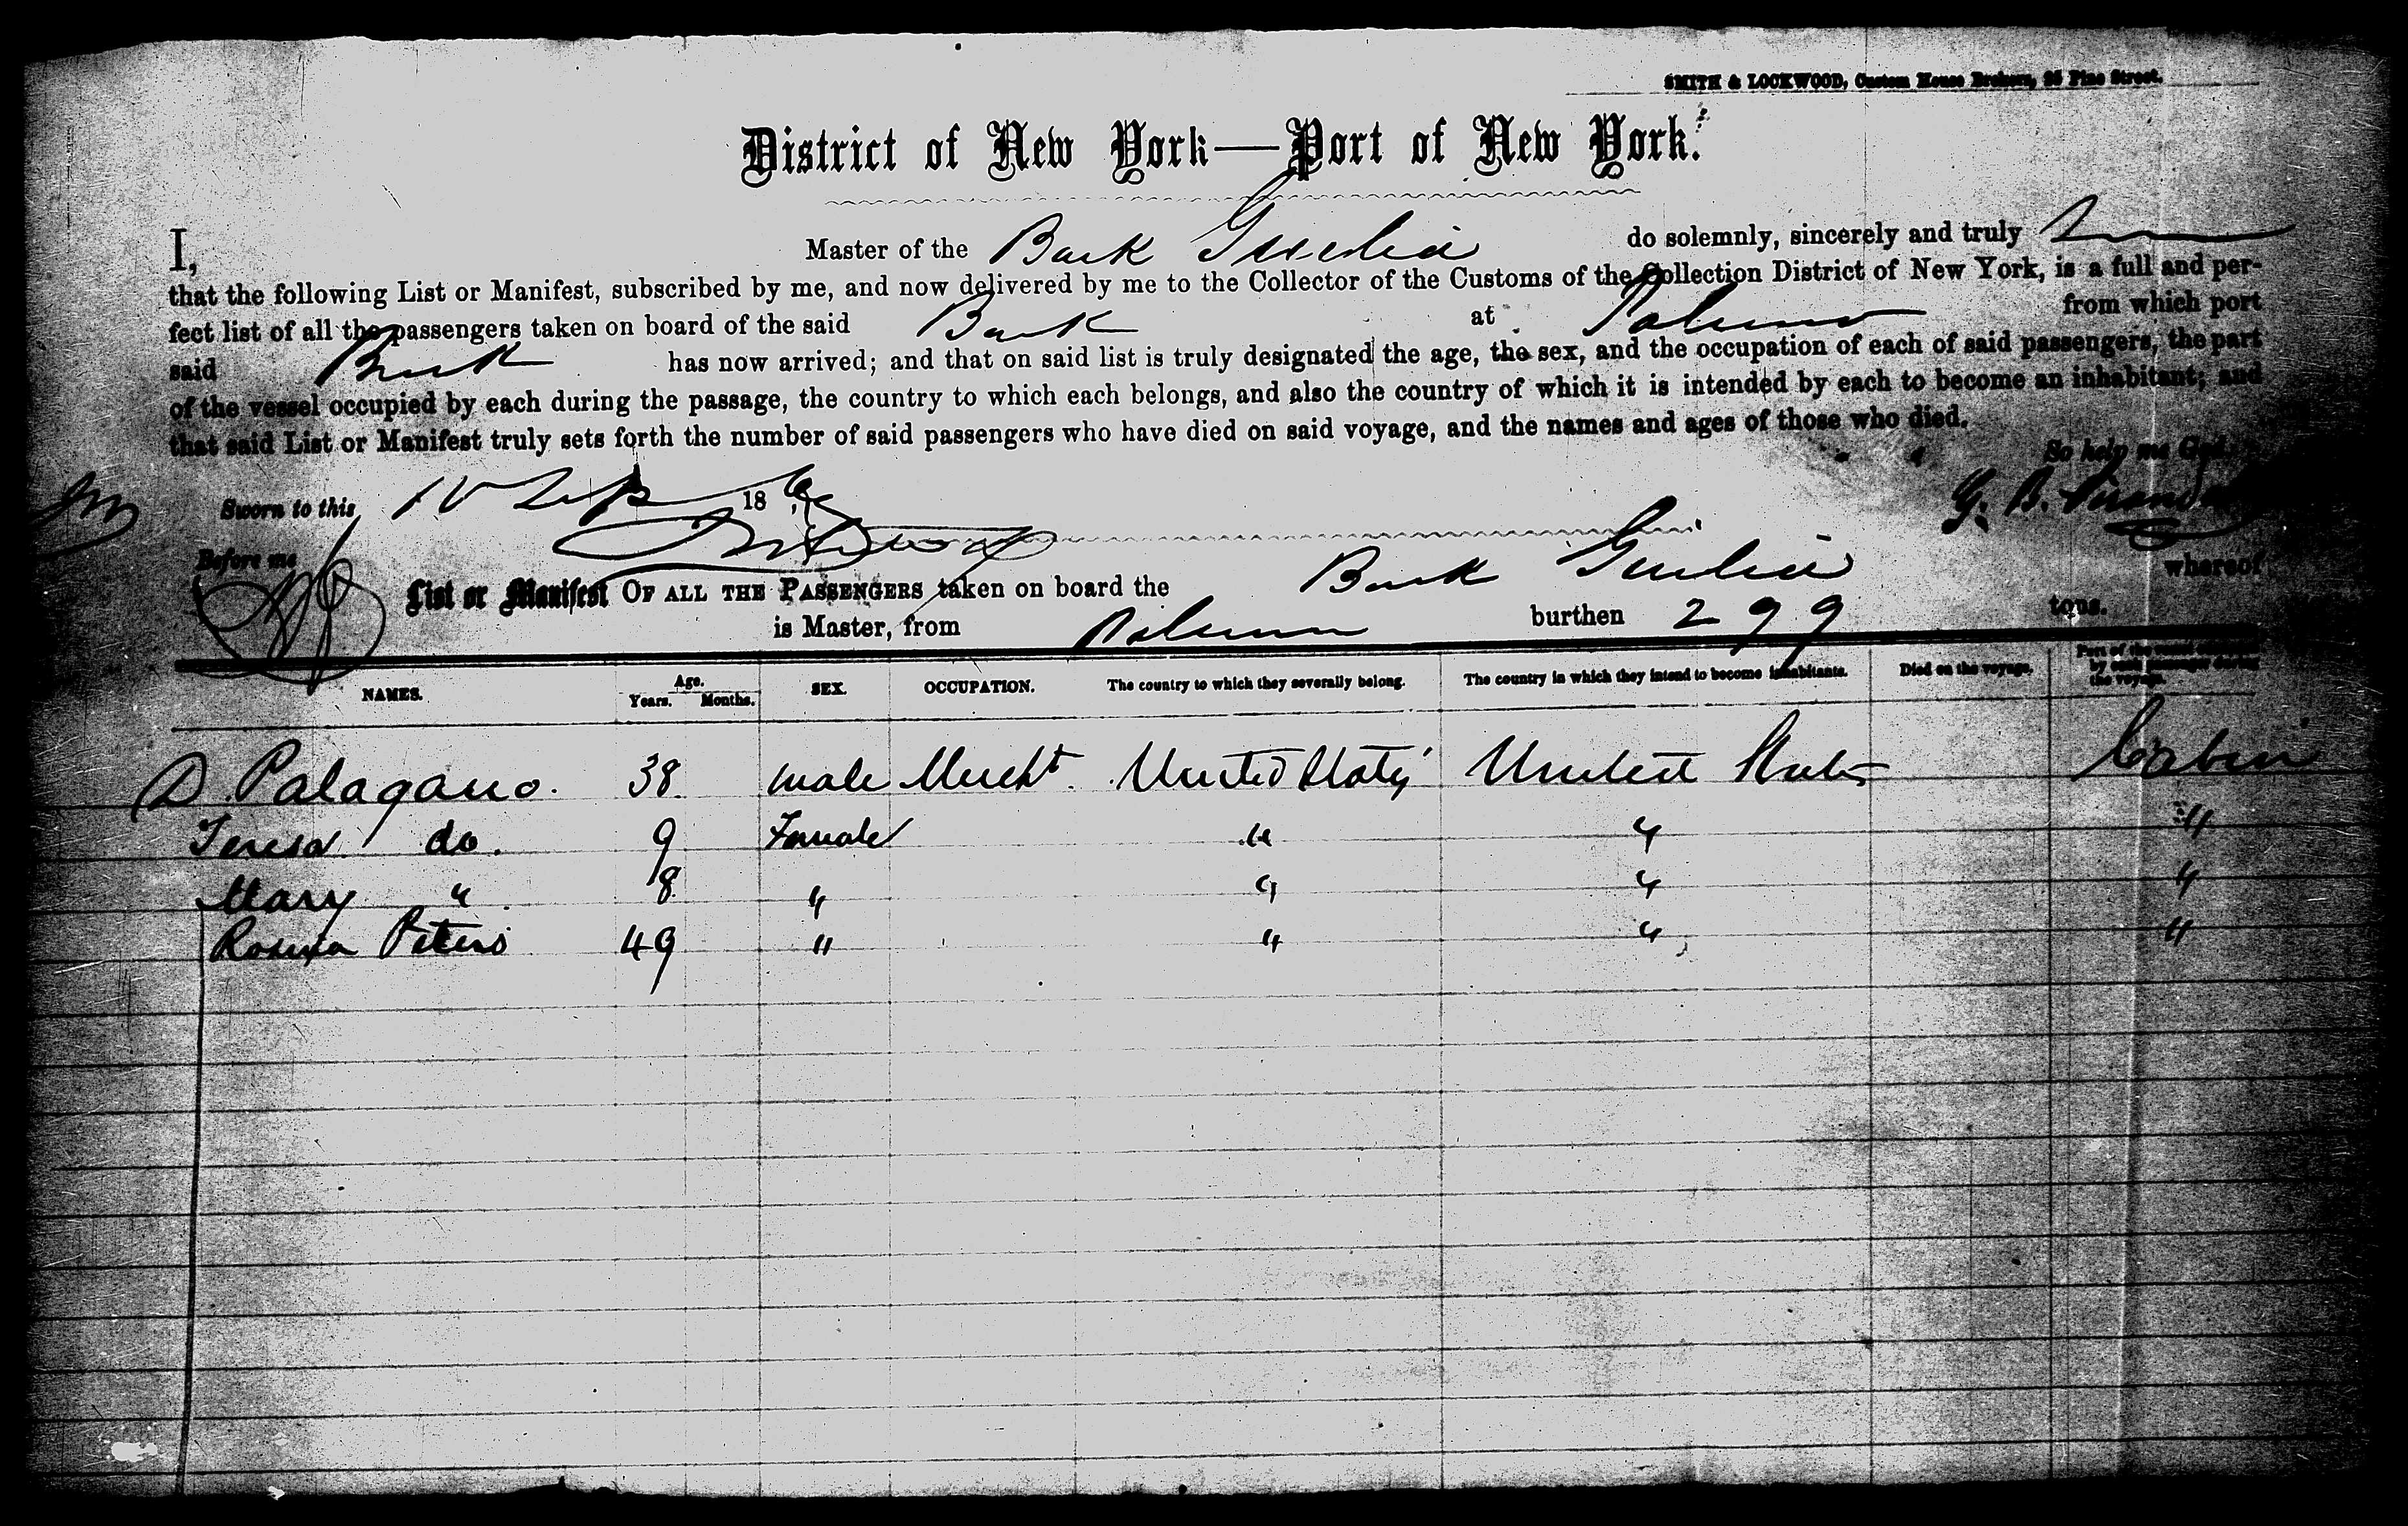 SMITH & LOCKWOOD, Custom House Brokers, 25 Pine Street.
District of New York—Port of New York.
I, Master of the Bark Giulia do solemnly, sincerely and truly
that the following List or Manifest, subscribed by me, and now delivered by me to the Collector of the Customs of the Collection District of New York, is a full and per-
fect list of all the passengers taken on board of the said Bark at Palermo from which port
said Bark has now arrived; and that on said list is truly designated the age, the sex, and the occupation of each of said passengers, the part
of the vessel occupied by each during the passage, the country to which each belongs, and also the country of which it is intended by each to become an inhabitant; and
that said List or Manifest truly sets forth the number of said passengers who have died on said voyage, and the names and ages of those who died.
So help me God.
Sworn to this Sep 186 G. B.
Before me
List or Manifest OF ALL THE PASSENGERS taken on board the Bark Giulia whereof
is Master, from Palermo burthen 299 tons.
NAMES. Age. Years. Months. SEX. OCCUPATION. The country to which they severally belong. The country in which they intend to become inhabitants. Died on the voyage. Part of the vessel occupied by each passenger during the voyage.
D. Palagano. 38 male Mercht. United States United States Cabin
Teresa do. 9 Female " " "
Mary " 18 " " " "
Rosina Peters 49 " " " "